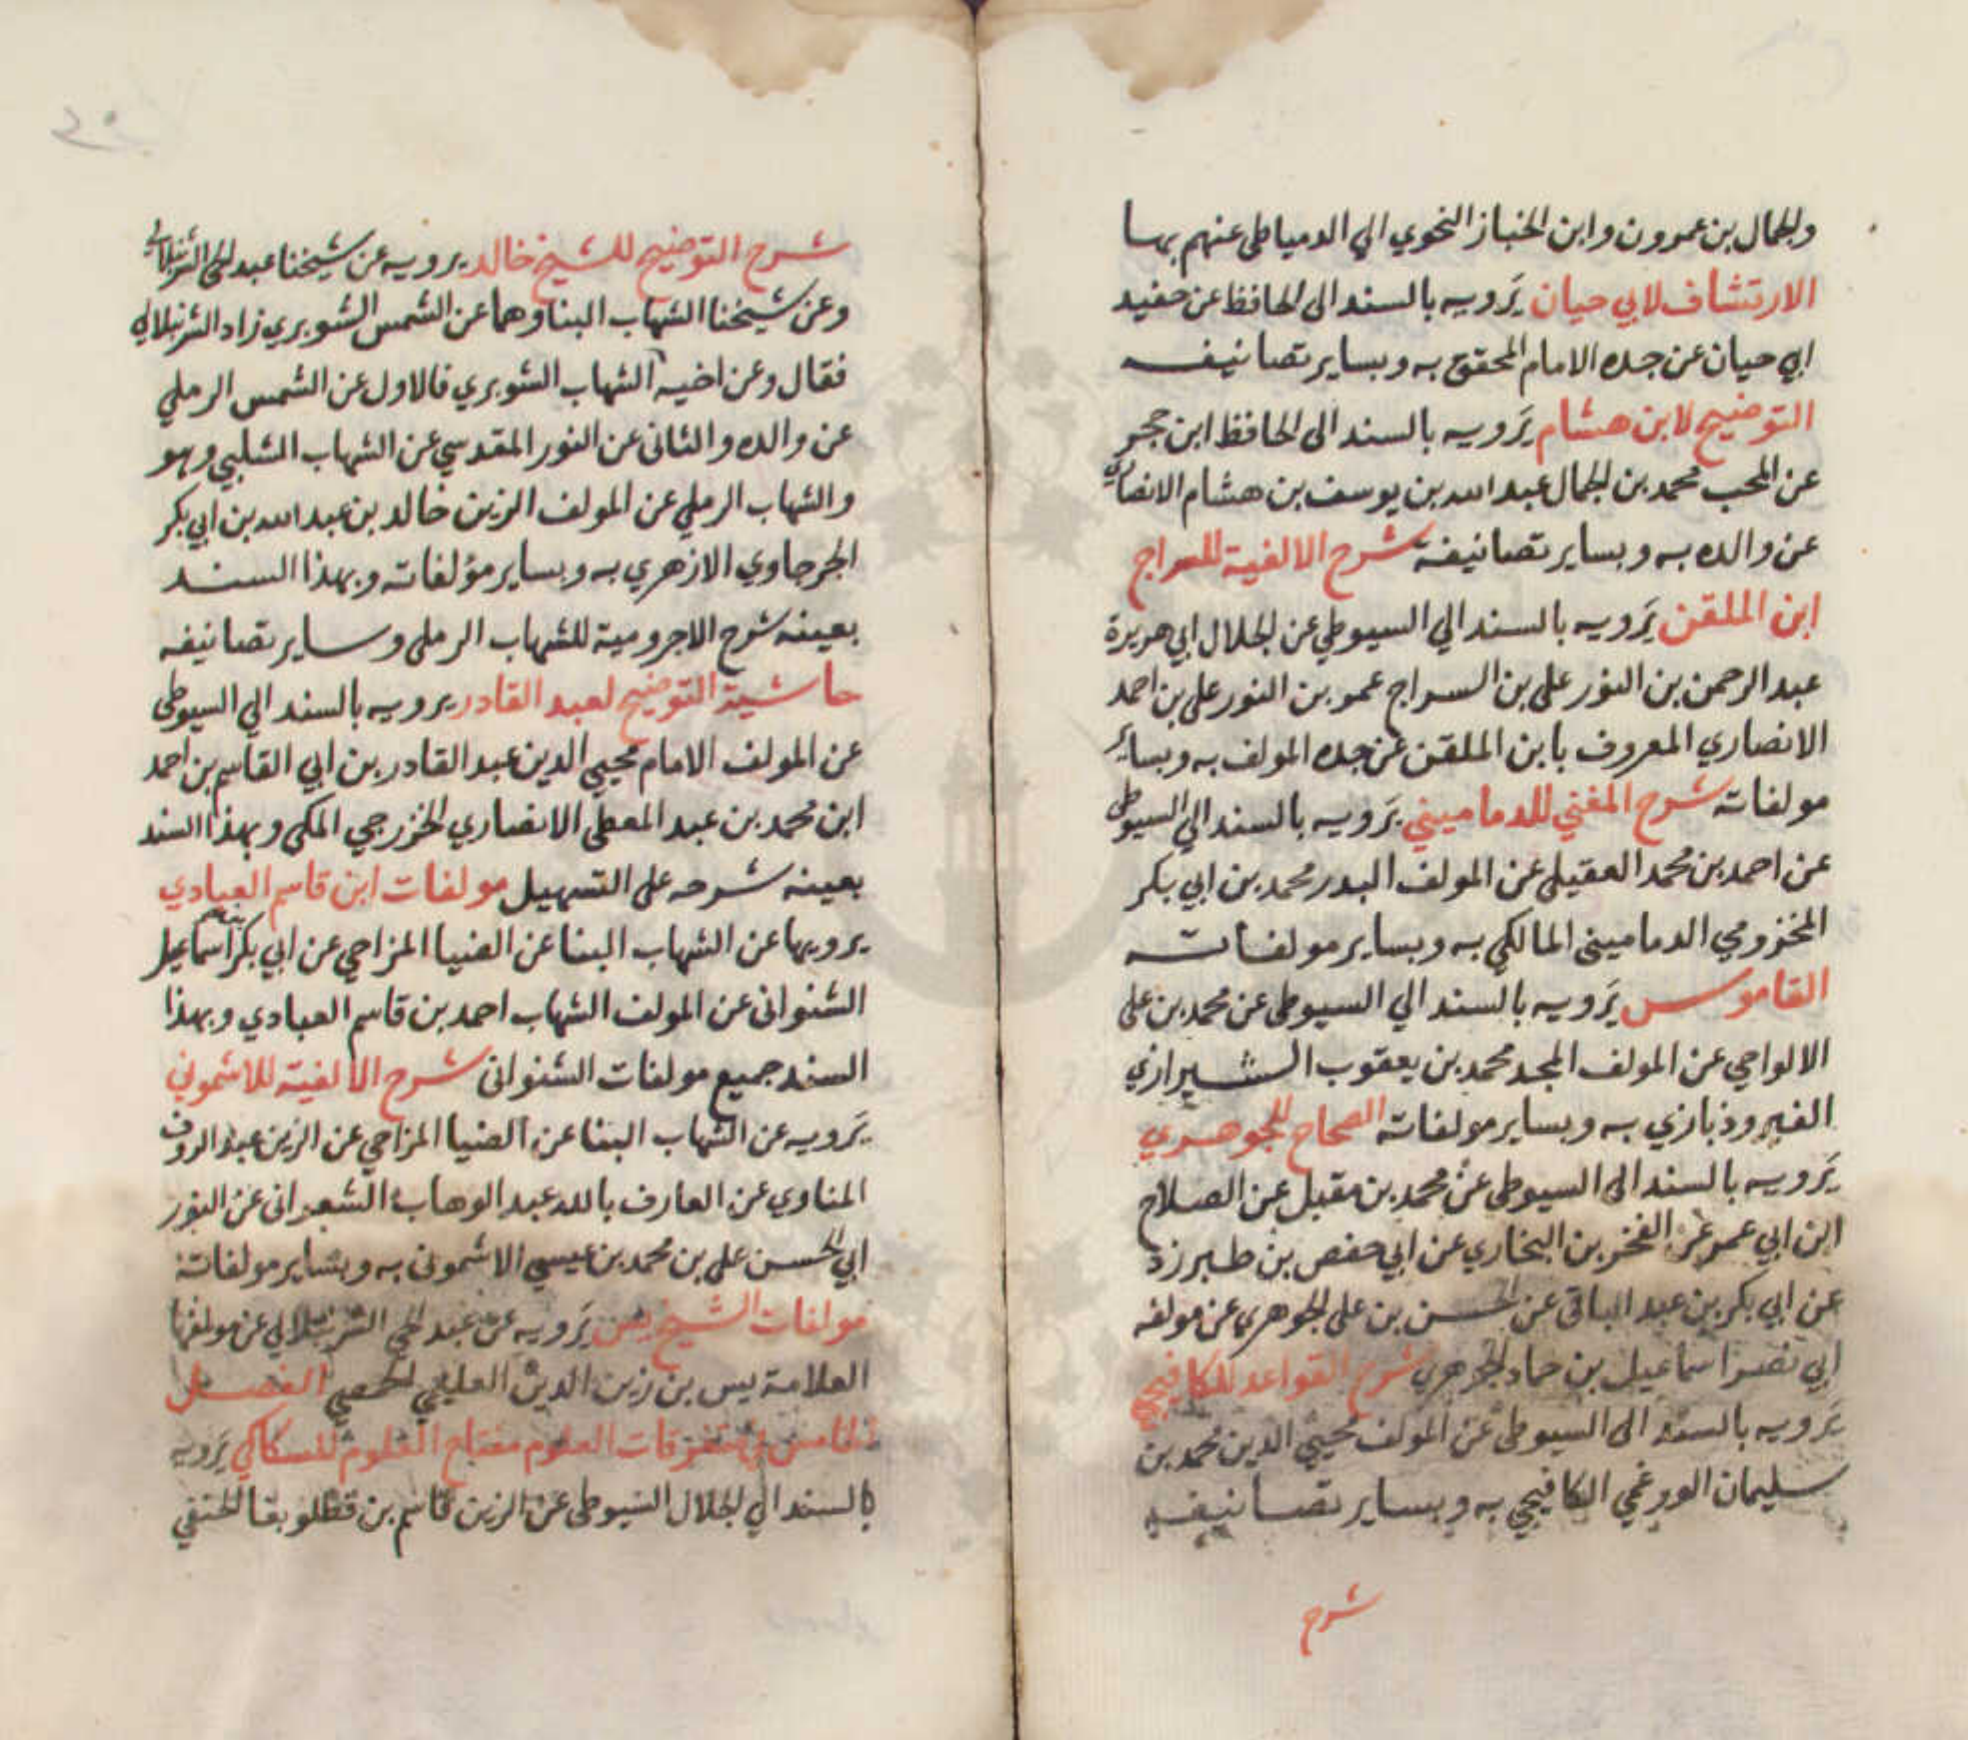 والجمال بن عمرون وابن الخباز النحوي الي الدمياطي عنهم بها
الارتشاف لابي حيان يَرويه بالسند الى الحافظ عن حفيد
ابي حيان عن جده الامام المحقق به وبساير تصانيفه
التوضيح لابن هشام يَرويه بالسند الى الحافظ ابن حجر
عن المحب محمد بن الجمال عبد الله بن يوسف بن هشام الانصاري
عن والده به وبساير تصانيفه شرح الالفية للسراج
ابن الملقن يَرويه بالسند الي السيوطي عن الجلال ابي هريرة
عبد الرحمن بن النور علي بن السراج عمر بن النور علي بن احمد
الانصاري المعروف بابن الملقن عن جده المولف به وبساير
مولفاته شرح المغني للدماميني يَرويه بالسند الي السيوطي
عن احمد بن محمد العقيلي عن المولف البدر محمد بن ابي بكر
المخزومي الدماميني المالكي به وبساير مولفاته
القاموس يَرويه بالسند الي السيوطي عن محمد بن علي
الالواحي عن المولف المجد محمد بن يعقوب الشيرازي
الفيروذبازي به وبساير مولفاته الصحاح للجوهري
يَرويه بالسند الى السيوطي عن محمد بن مقبل عن الصلاح
ابن ابي عمر عن الفخر بن البخاري عن ابي حفص بن طبرزذ
عن ابي بكر بن عبد الباقي عن الحسن بن علي الجوهري عن مولفه
ابي نصر اسماعيل بن حماد الجوهري شرح القواعد للكافيجي
يَرويه بالسند الى السيوطي عن المولف محيي الدين محمد بن
سليمان الورغمي الكافيجي به وبساير تصانيفه
شرح
شرح التوضيح للشيخ خالد يرويه عن شيخنا عبد الحي الشرنبلالي
وعن شيخنا الشهاب البنا وهما عن الشمس الشوبري زاد الشرنبلالي
فقال وعن اخيه الشهاب الشوبري فالاول عن الشمس الرملي
عن والده والثاني عن النور المقدسي عن الشهاب الشلبي وهو
والشهاب الرملي عن المولف الزين خالد بن عبد الله بن ابي بكر
الجرجاوي الازهري به وبساير مؤلفاته وبهذا السند
بعينه شرح الاجرومية للشهاب الرملي وساير تصانيفه
حاشية التوضيح لعبد القادر يرويه بالسند الي السيوطي
عن المولف الامام محيي الدين عبد القادر بن ابي القاسم بن احمد
ابن محمد بن عبد المعطي الانصاري الخزرجي المكي وبهذا السند
بعينه شرحه على التسهيل مولفات ابن قاسم العبادي
يرويها عن الشهاب البنا عن الضيا المزاحي عن ابي بكر بن اسماعيل
الشنواني عن المولف الشهاب احمد بن قاسم العبادي وبهذا
السند جميع مولفات الشنواني شرح الالفية للاشموني
يَرويه عن الشهاب البنا عن الضيا المزاحي عن الزين عبد الروف
المناوي عن العارف بالله عبد الوهاب الشعراني عن النور
ابي الحسن علي بن محمد بن عيسي الاشموني به وبساير مولفاته
مولفات الشيخ يس يَرويه عن عبد الحي الشرنبلالي عن مولفها
العلامة يس بن زين الدين العليمي الحمصي الفصل
الخامس في متفرقات العلوم مفتاح العلوم للسكاكي يَرويه
بالسند الي الجلال السيوطي عن الزين قاسم بن قطلوبغا الحنفي